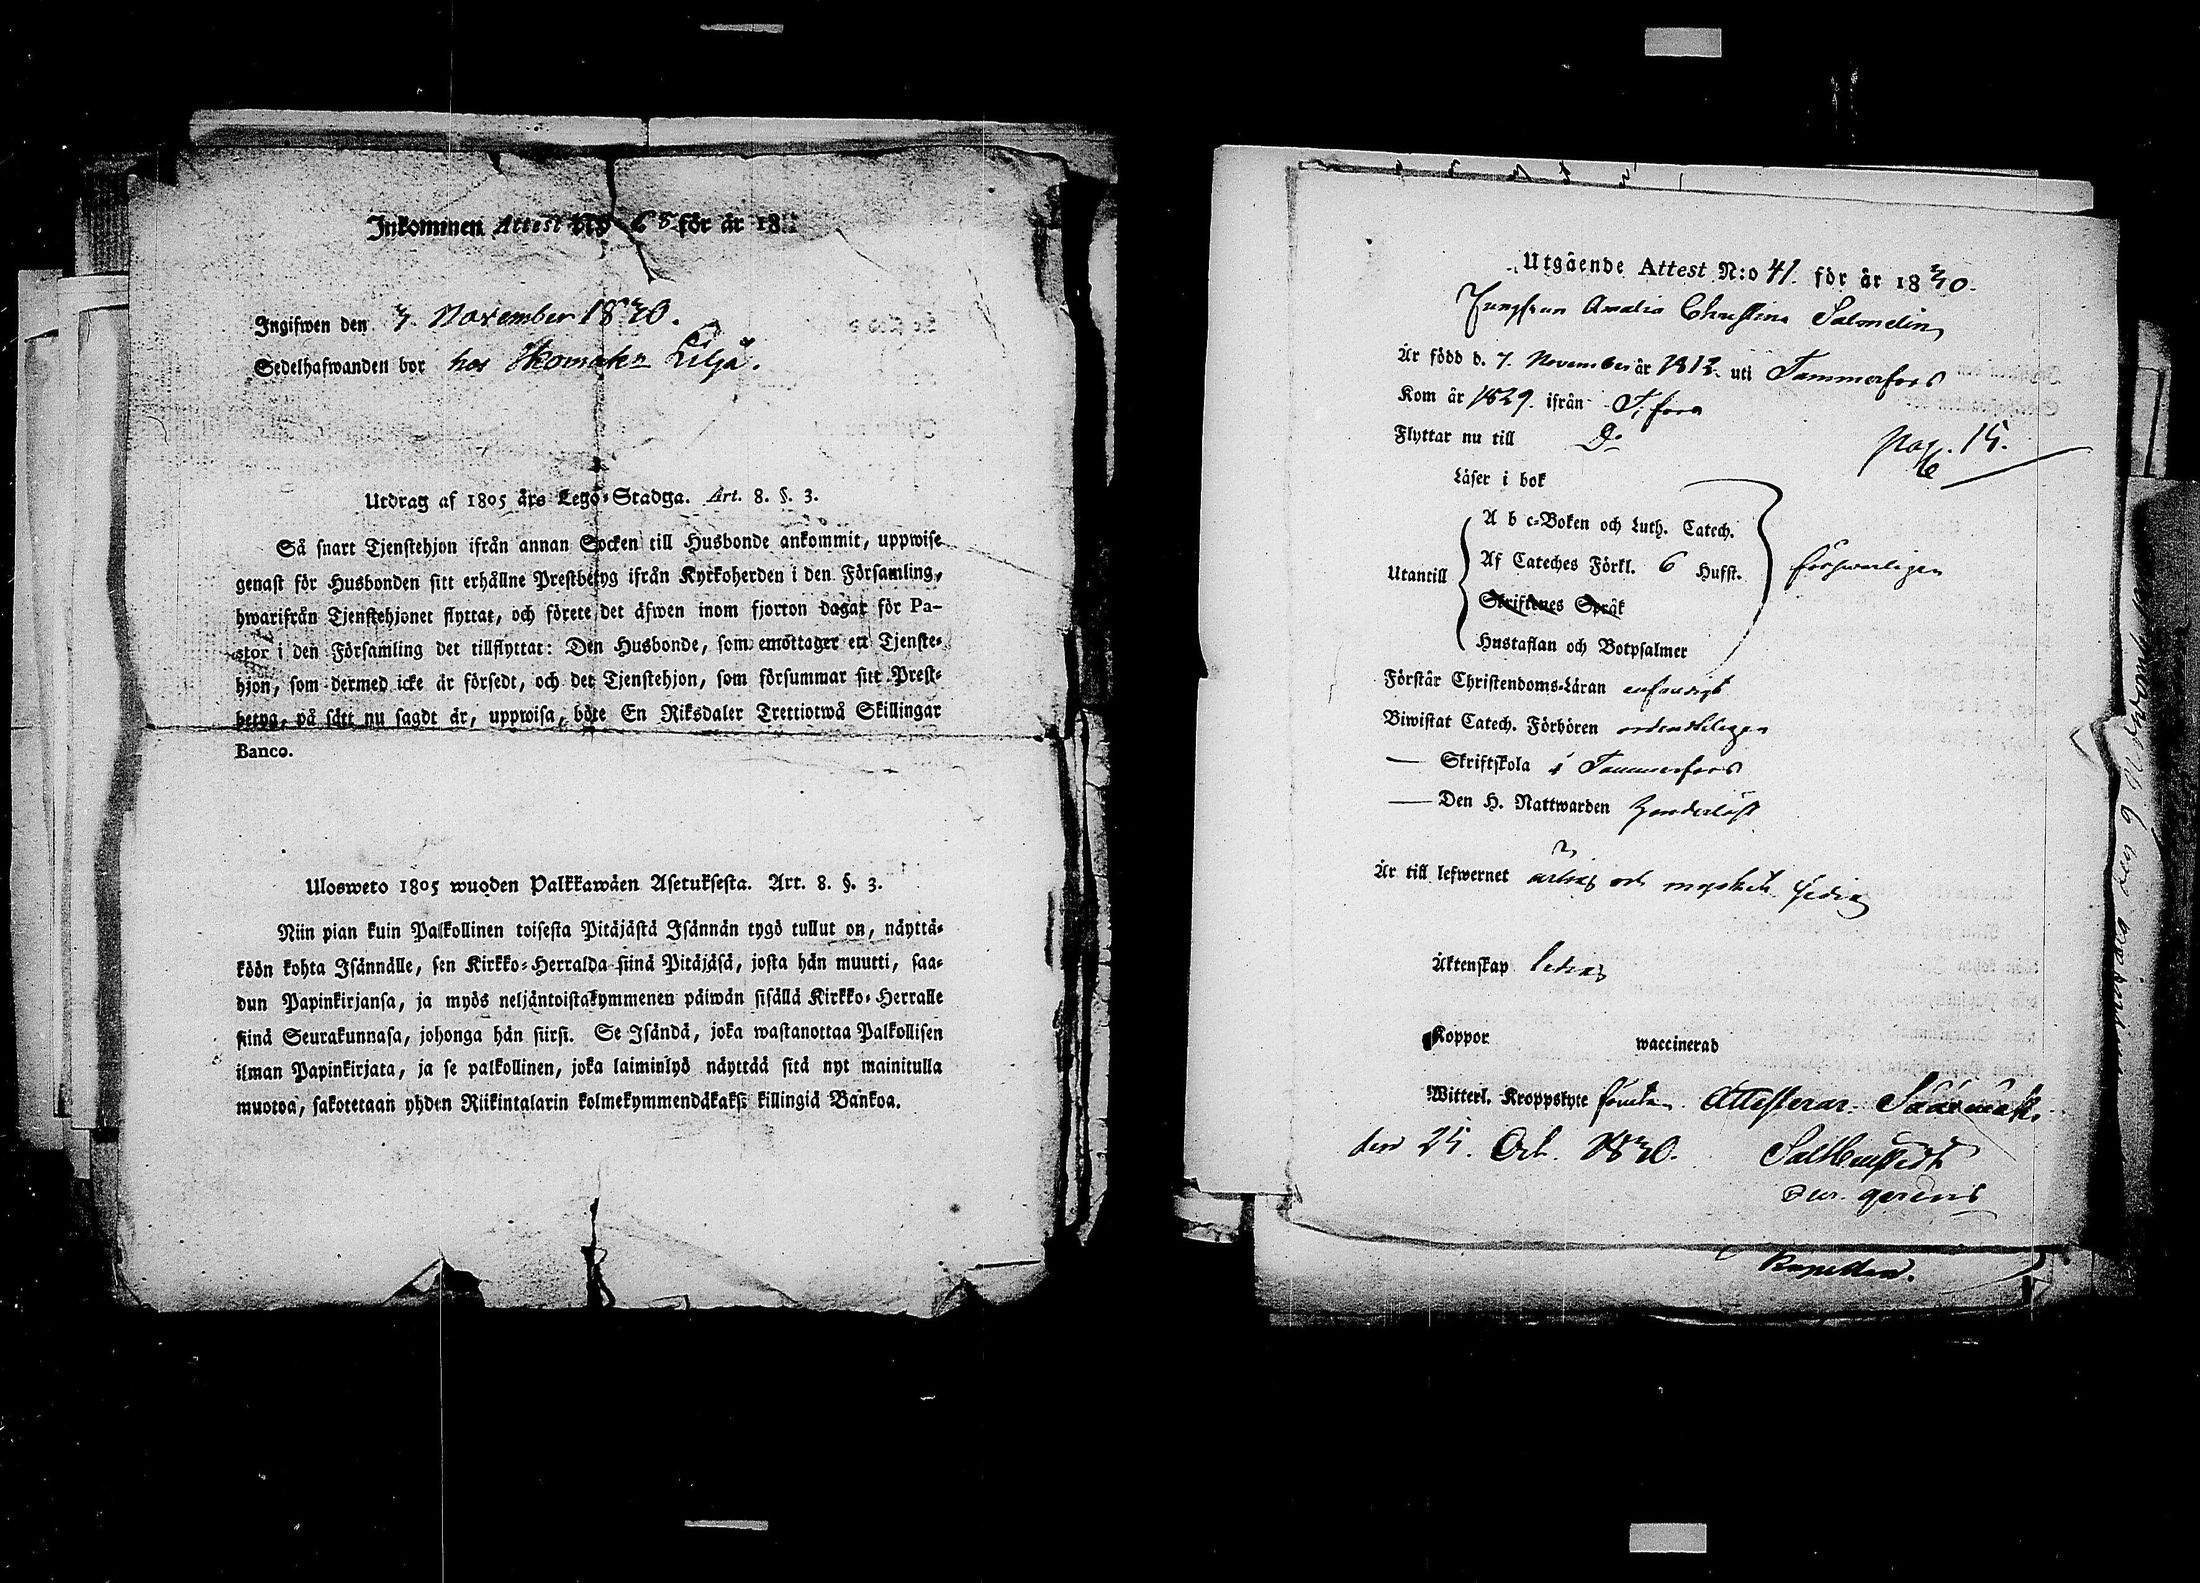 Inkommen Attest N:o 65 för år 18
Ingifwen den 3. November 1830.
Sedelhafwanden bor hos Skomak: Lilja.
Utdrag af 1805 års Lego-Stadga. Art. 8. §. 3.
Så snart Tjenstehjon ifrån annan Socken till Husbonde ankommit, uppwise
genast för Husbonden sitt erhållne Prestbetyg ifrån Kyrkoherden i den Församling,
hwarifrån Tjenstehjonet flyttat, och förete det äfwen inom fjorton dagar för Pa-
stor i den Församling det tillflyttat: Den Husbonde, som emottager ett Tjenste-
hjon, som dermed icke är försedt, och det Tjenstehjon, som försummar sitt Prest-
betyg, på sätt nu sagdt är, uppwisa, böte En Riksdaler Trettiotwå Skillingar
Banco.
Ulosweto 1805 wuoden Palkkawäen Asetuksesta. Art. 8. §. 3.
Niin pian kuin Palkollinen toisesta Pitäjästä Isännän tygö tullut on, näyttä-
köön kohta Isännälle, sen Kirkko-Herralda siinä Pitäjäsä, josta hän muutti, saa-
dun Papinkirjansa, ja myös neljäntoistakymmenen päiwän sisällä Kirkko-Herralle
siinä Seurakunnasa, johonga hän siirsi. Se Isändä, joka wastanottaa Palkollisen
ilman Papinkirjata, ja se palkollinen, joka laiminlyö näyttää sitä nyt mainitulla
muotoa, sakotetaan yhden Riikintalarin kolmekymmendäkaksi killingiä Bankoa.
Utgående Attest N:o 41. för år 1830.
Jungfrun Amalia Christina Salmelin
Är född d. 7. November år 1812. uti Tammerfors
Kom år 1829. ifrån T:fors
Flyttar nu till Do
pag. 15.
Läser i bok
A b c-Boken och Luth. Catech.
Utantill Af Cateches Förkl. 6 Hufst. försvarligen
Skriftenes Språk
Hustaflan och Botpsalmer
Förstår Christendoms-Läran enfaldigt
Biwistat Catech. Förhören ordentligen
— Skriftskola i Tammerfors
— Den H. Nattwarden
Är till lefwernet ärlig och mycket sedig
Äktenskap ledig
Koppor waccinerad
Witterl. Kroppslyte Attesterar
den 25. Oct. 1830.